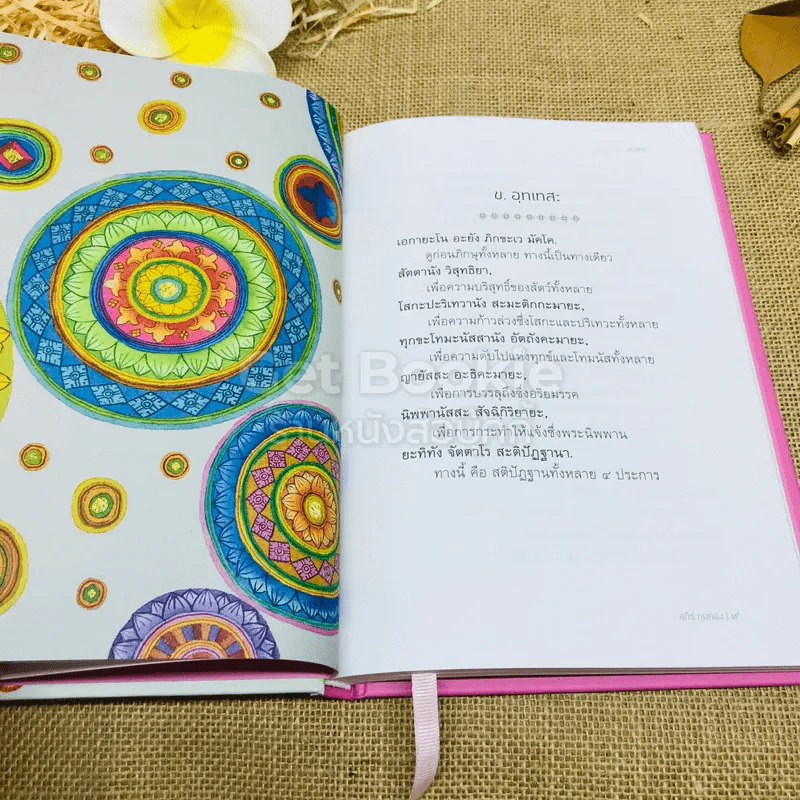 ข. อุทเทสะ
เอกายะโน อะยัง ภิกขะเว มัคโค.
ดูก่อนภิกษุทั้งหลาย ทางนี้เป็นทางเดียว
สัตตานัง วิสุทธิยา,
เพื่อความบริสุทธิ์ของสัตว์ทั้งหลาย
โสกะปะริเทวานัง สะมะติกกะมายะ,
เพื่อความก้าวล่วงซึ่งโสกะและปริเทวะทั้งหลาย
ทุกขะโทมะนัสสานัง อัตถังคะมายะ,
เพื่อความดับไปแห่งทุกข์และโทมนัสทั้งหลาย
Get Bookie
ญายัสสะ อะธิคะมายะ,
เพื่อการบรรลุถึงซึ่งอริยมรรค
นิพพานัสสะ สัจฉิกิริยายะ,
เพื่อการกระทำให้แจ้งซึ่งพระนิพพาน
ยะทิทัง จัตตาโร สะติปัฏฐานา.
ทางนี้ คือ สติปัฏฐานทั้งหลาย ๔ ประการ